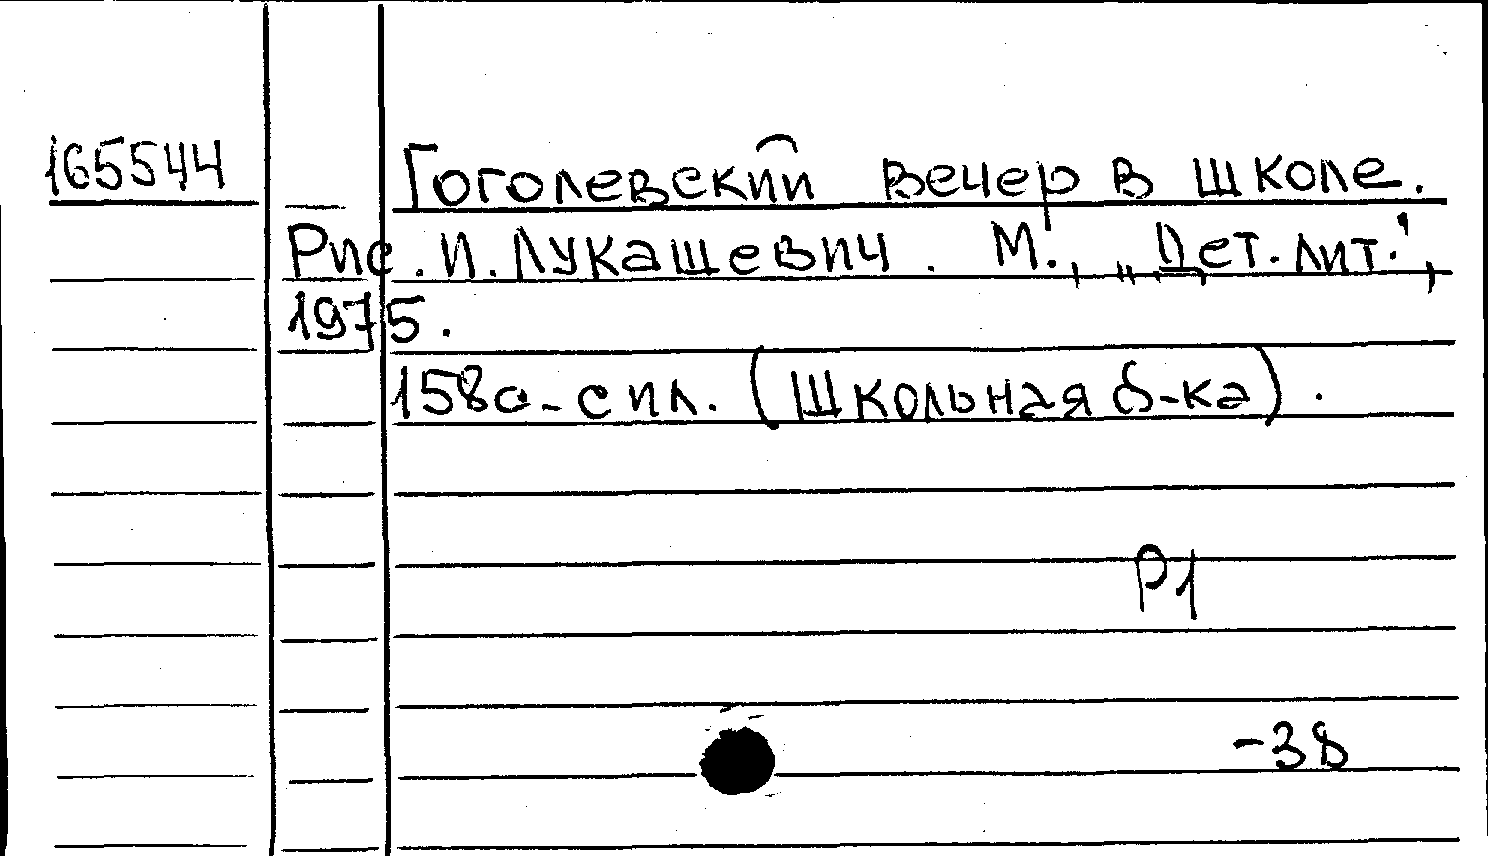 165544 Гоголевский вечер в школе.
Рис. И. Лукашевич. М., „Дет. лит.",
1975.
158с. с ил. (Школьная б-ка).
Р1
-38